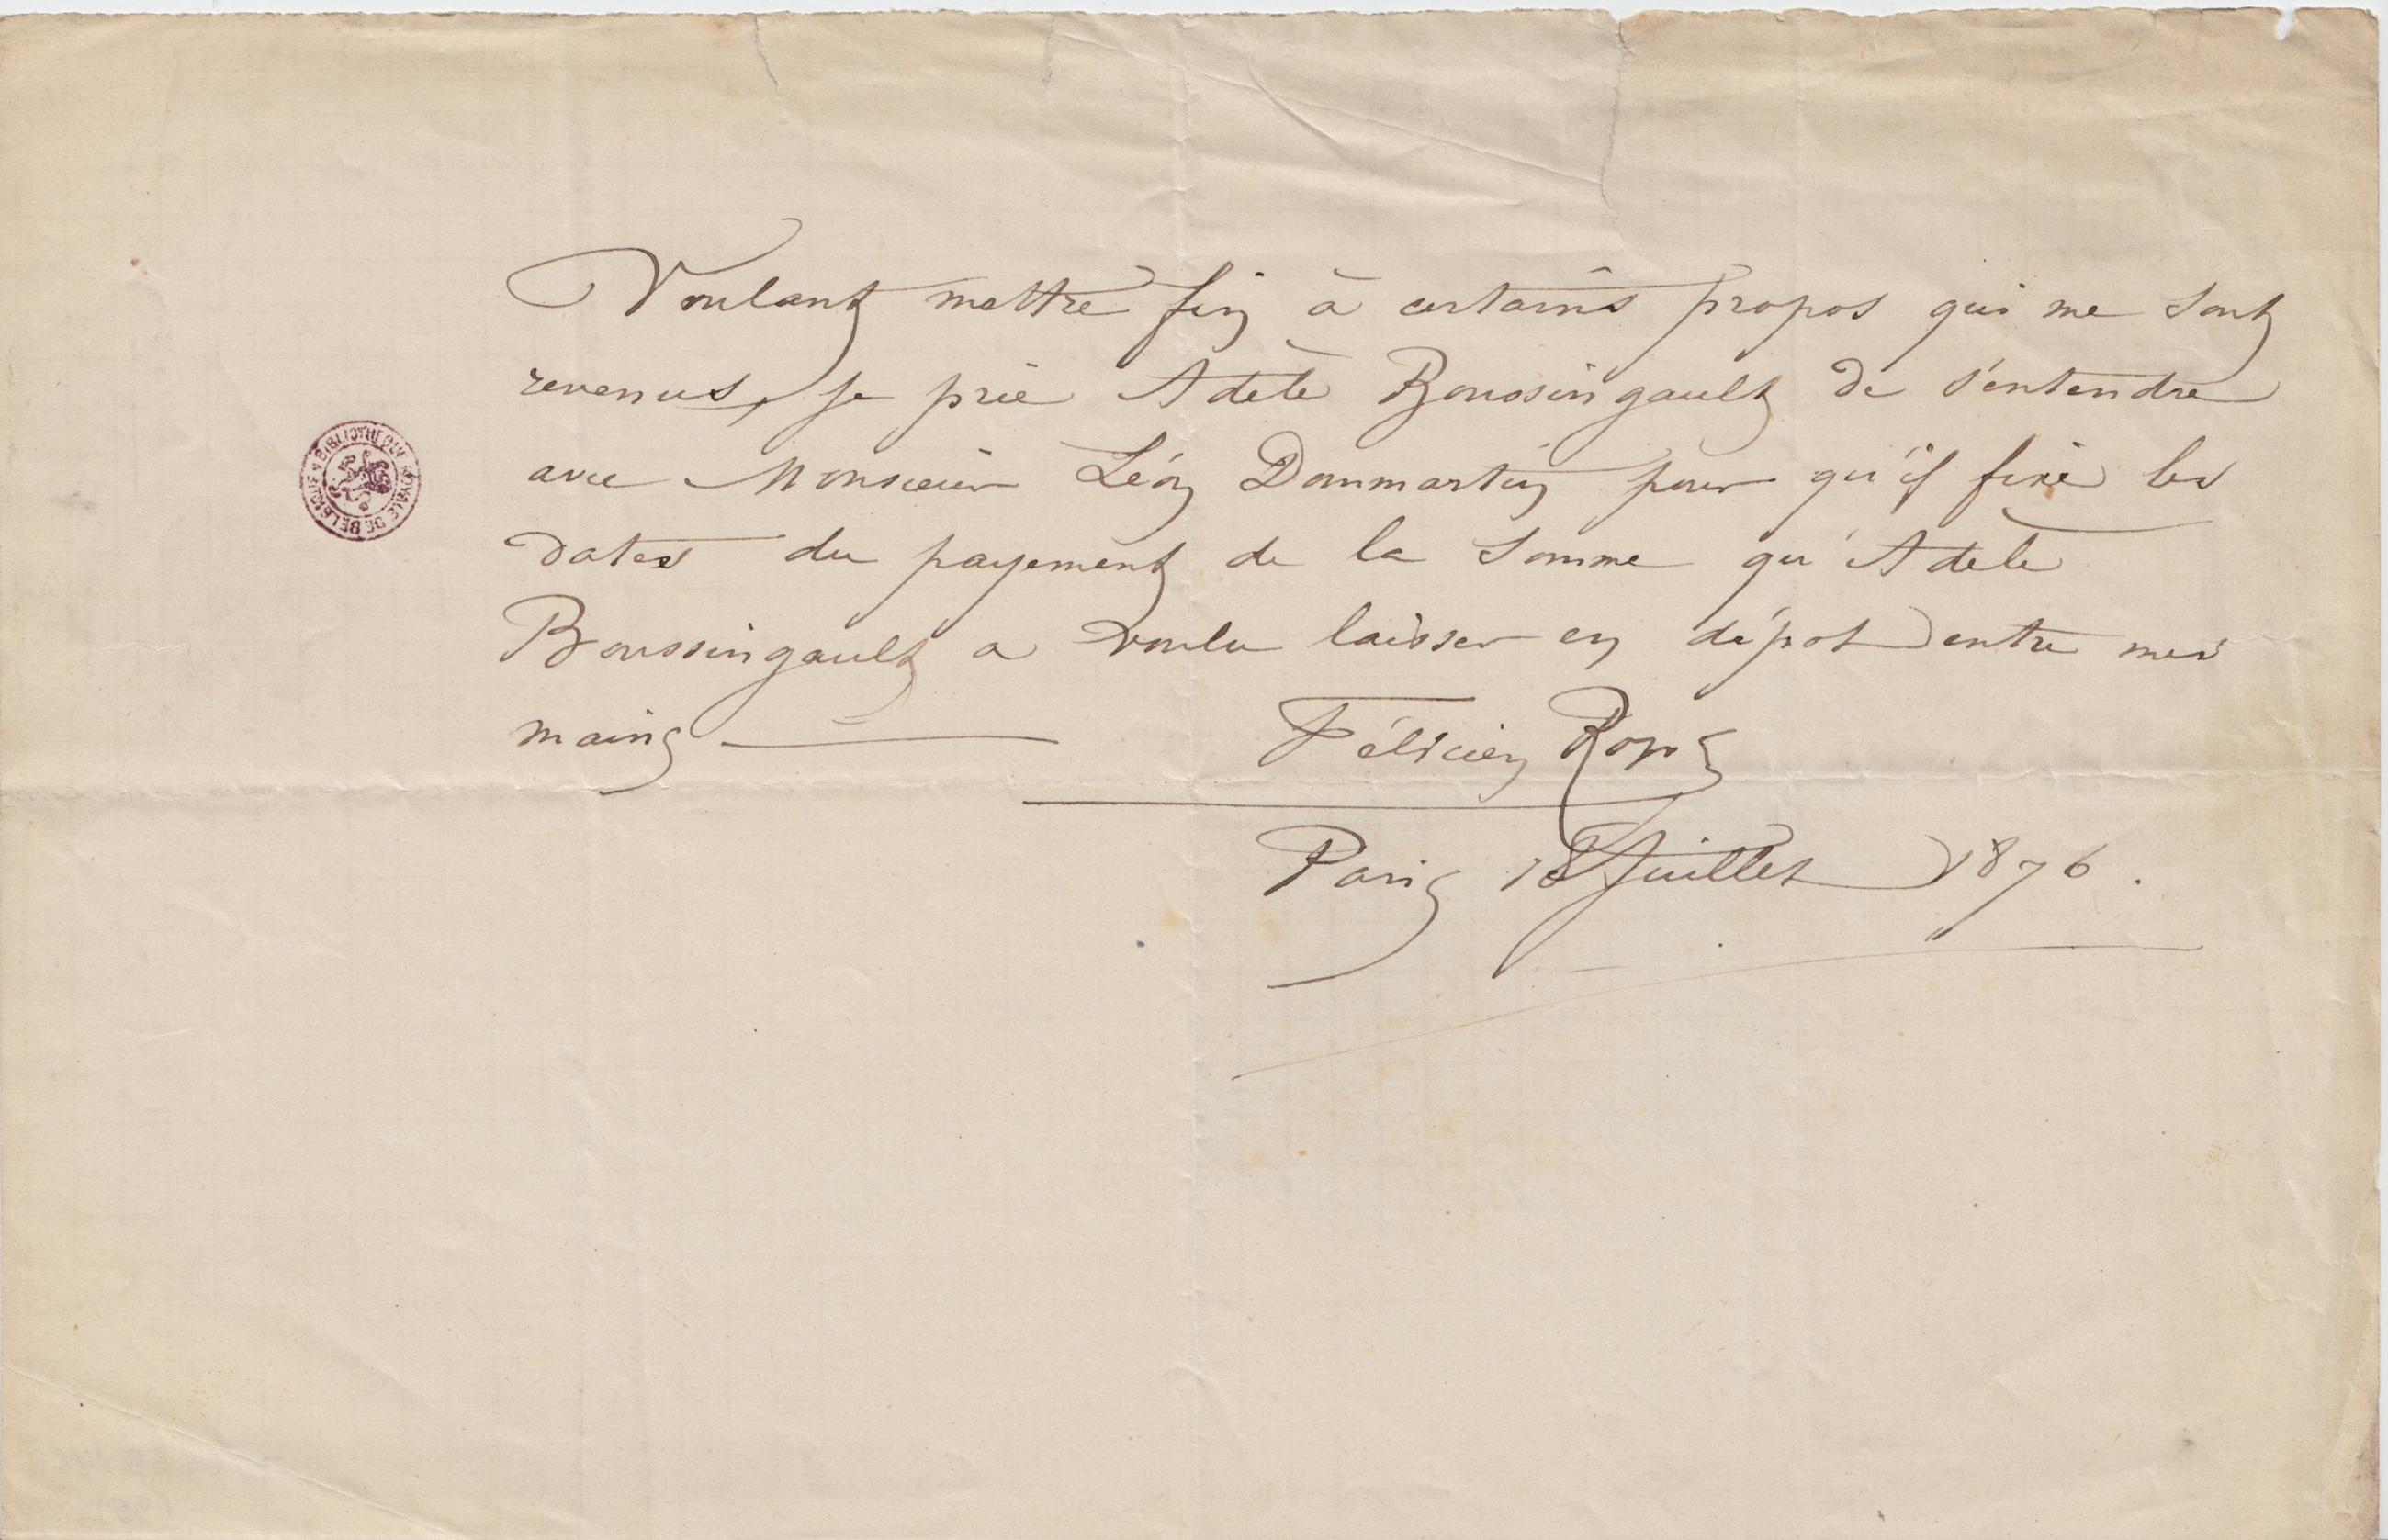 Voulant mettre fin à certains propos qui me sont
revenus, je prie Adèle Boussingault de s'entendre
avec Monsieur Léon Dommartin pour qu'il fixe les
dates du payement de la somme qu'Adèle
Boussingault a voulu laisser en dépot entre mes
mains
Félicien Rops
Paris 18 Juillet 1876.
BIBLIOTHEQUE ROYALE DE BELGIQUE